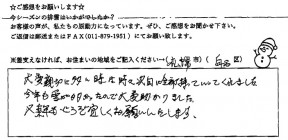 ☆ご感想をお願いします☆
今シーズンの排雪はいかがでしたか？
お客様の声が、私たちの原動力になっています。ぜひ、ご感想をお聞かせ下さい。
ご返信は郵送またはFAX(011-879-1951)にてお願い致します。
※差支えなければ、お住まいの地域をご記入ください→(札幌市)(区)
大変親切で
今年も雪が多かったので大変助かりました。
又来年もどうぞ宜しくお願いいたします。